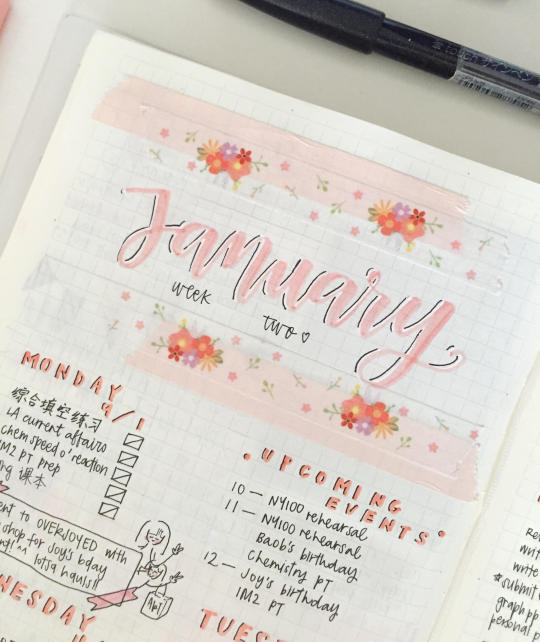 January
week
two ♡
MONDAY
9/1
综合填空练习
LA current affairs
chem speed o' reaction
IM2 PT prep
课本
to OVERJOYED with
shop for Joy's bday
lotta hauls!!
Art
UPCOMING
EVENTS
10 — NY100 rehearsal
11 — NY100 rehearsal
Baob's birthday
Chemistry PT
12 — Joy's birthday
IM2 PT
submit
graph
personal